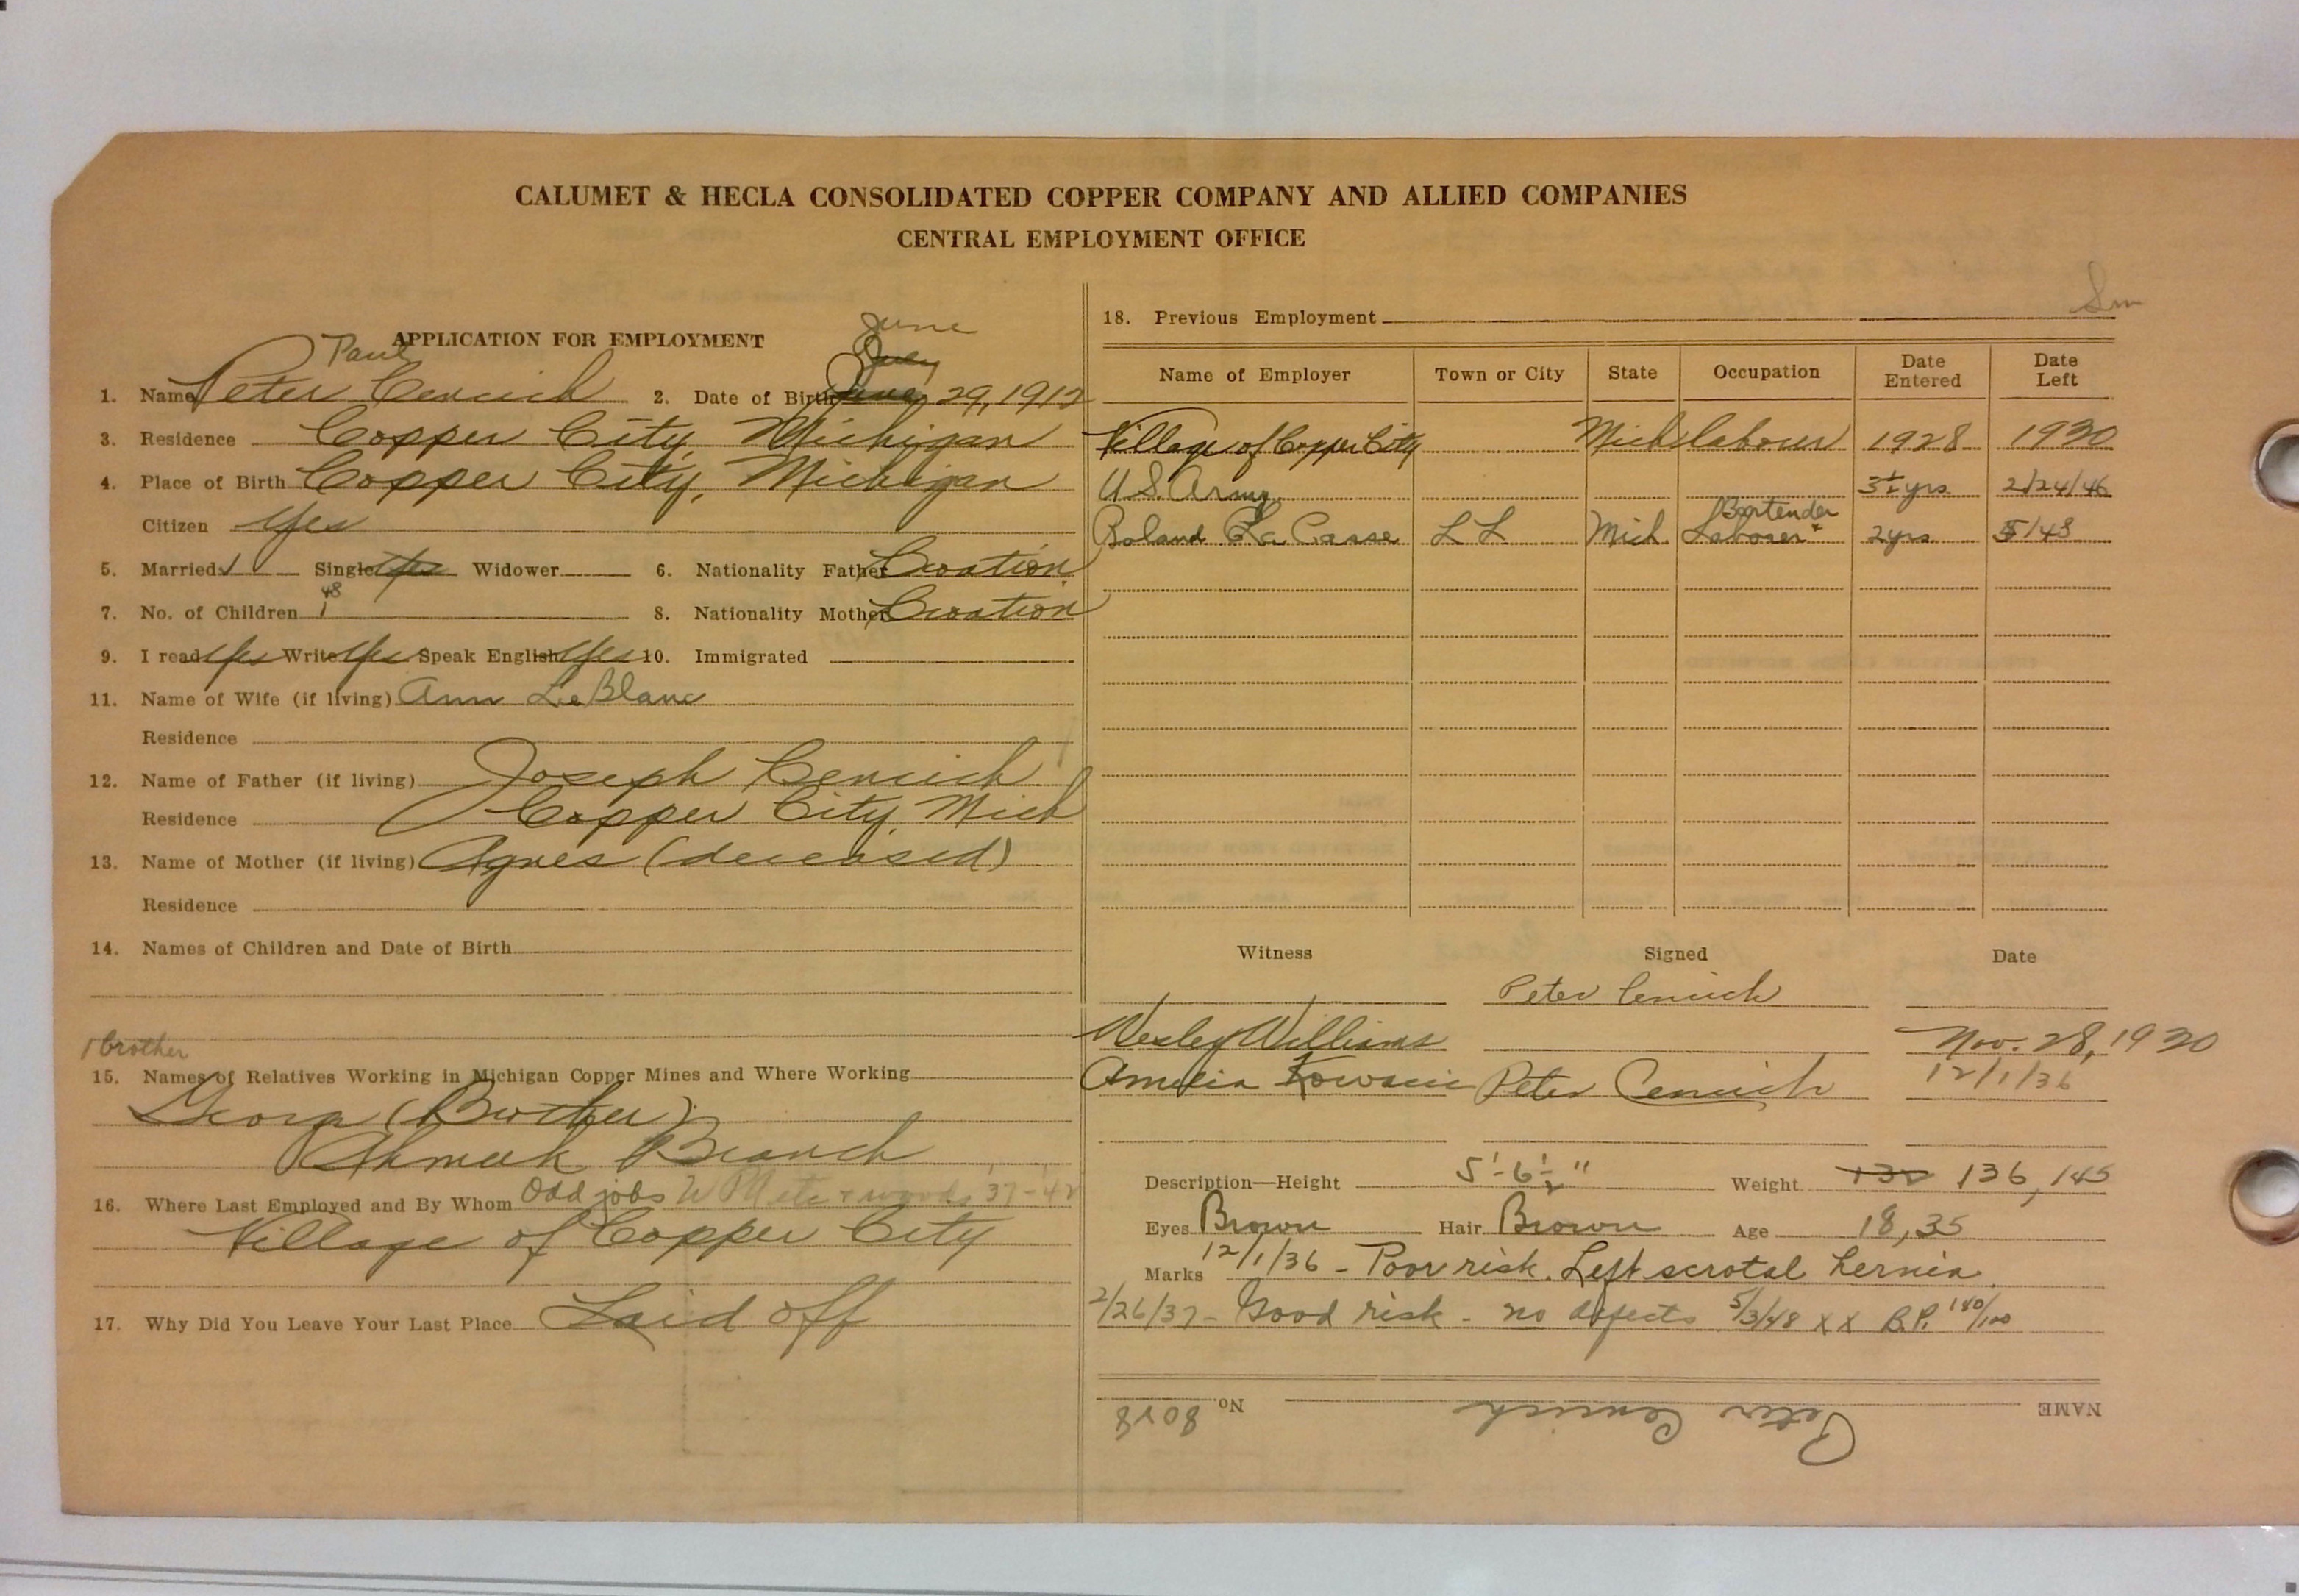 CALUMET & HECLA CONSOLIDATED COPPER COMPANY AND ALLIED COMPANIES
CENTRAL EMPLOYMENT OFFICE
APPLICATION FOR EMPLOYMENT
June
Paul
July
1. Name Peter Cencich 2. Date of Birth June 29, 1912
3. Residence Copper City, Michigan
4. Place of Birth Copper City, Michigan
Citizen Yes
5. Married ✓ Single Yes Widower 6. Nationality Father Croation
48
7. No. of Children 1 8. Nationality Mother Croation
9. I read Yes Write Yes Speak English Yes 10. Immigrated
11. Name of Wife (if living) Ann LeBlanc
Residence
12. Name of Father (if living) Joseph Cencich
Residence Copper City, Mich
13. Name of Mother (if living) Agnes (deceased)
Residence
14. Names of Children and Date of Birth
1 brother
15. Names of Relatives Working in Michigan Copper Mines and Where Working
Georg (Brother)
Ahmeek Branch
16. Where Last Employed and By Whom Odd jobs woods 37-42
Village of Copper City
17. Why Did You Leave Your Last Place Laid off
18. Previous Employment
Name of Employer Town or City State Occupation Date Entered Date Left
Village of Copper City Mich labour 1928 1930
U.S. Army 3½ yrs. 2/24/46
Bartender
Roland La Casse LL Mich. Laborer 2 yrs 5/48
Witness Signed Date
Peter Cencich
Wesley Williams Nov. 28, 1930
Amelia Peter Cencich 12/1/36
Description—Height 5'-6½" Weight 136, 145
Eyes Brown Hair Brown Age 18, 35
Marks 12/1/36 - Poor risk. Left scrotal hernia
2/26/37 - Good risk - no defects 5/3/48 XX B.P. 140/100
NAME Peter Cencich No. 8028